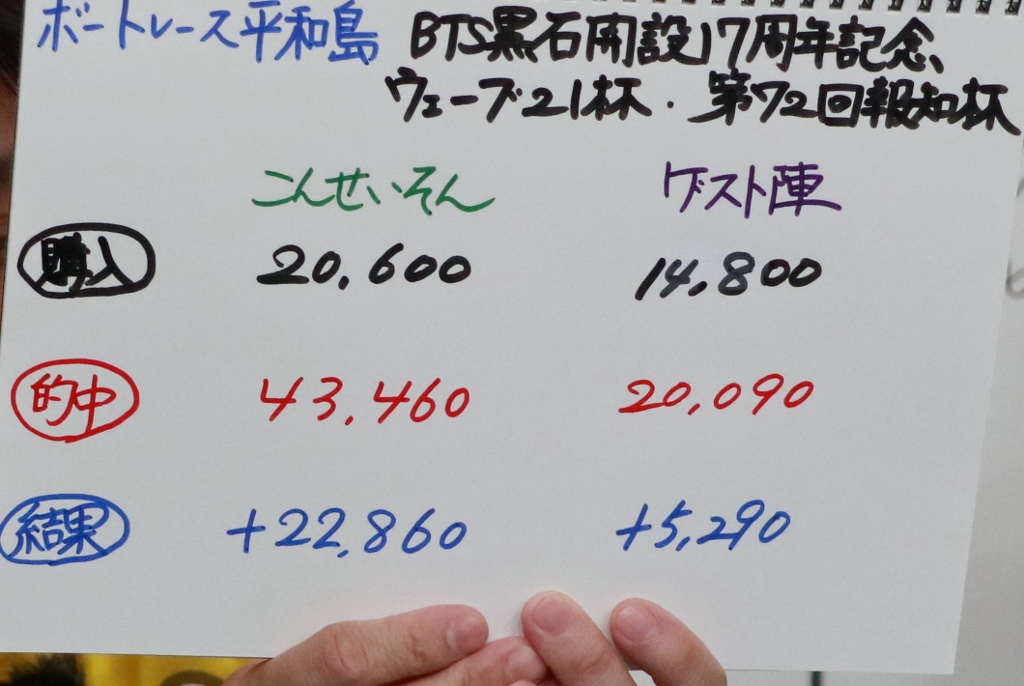 ボートレース平和島 BTS黒石開設17周年記念、
ウェーブ21杯・第72回報知杯
こんせいそん ゲスト陣
購入 20,600 14,800
的中 43,460 20,090
結果 +22,860 +5,290